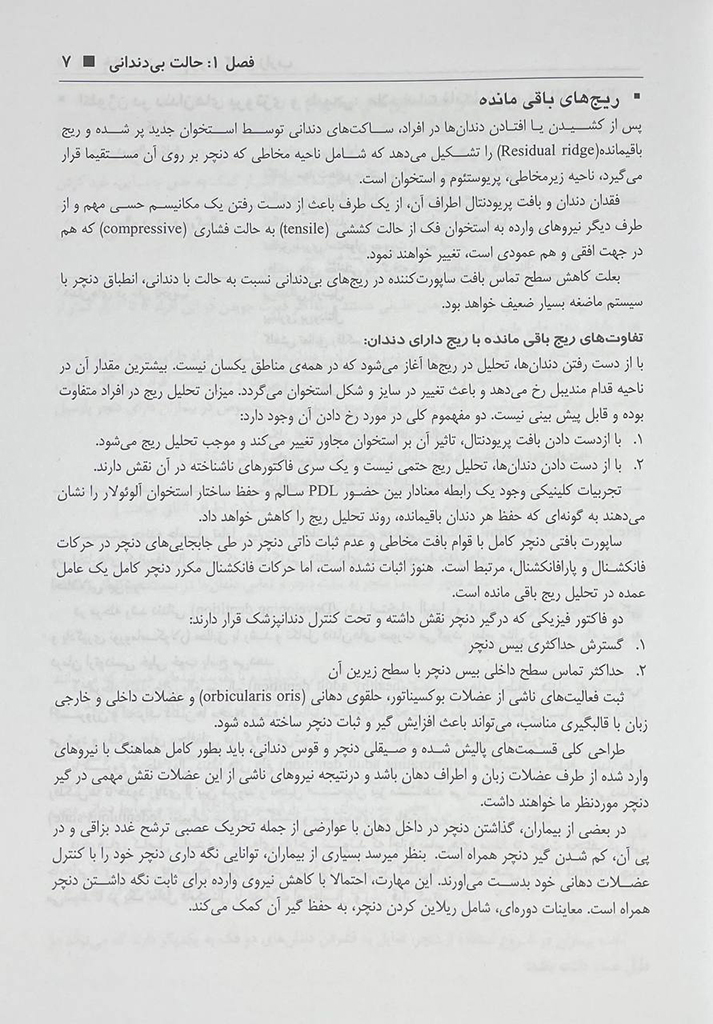 فصل ۱: حالت بی‌دندانی ■ ۷
▪ ریج‌های باقی مانده
پس از کشیدن یا افتادن دندان‌ها در افراد، ساکت‌های دندانی توسط استخوان جدید پر شده و ریج
باقیمانده(Residual ridge) را تشکیل می‌دهد که شامل ناحیه مخاطی که دنچر بر روی آن مستقیما قرار
می‌گیرد، ناحیه زیرمخاطی، پریوستئوم و استخوان است.
فقدان دندان و بافت پریودنتال اطراف آن، از یک طرف باعث از دست رفتن یک مکانیسم حسی مهم و از
طرف دیگر نیروهای وارده به استخوان فک از حالت کششی (tensile) به حالت فشاری (compressive) که هم
در جهت افقی و هم عمودی است، تغییر خواهند نمود.
بعلت کاهش سطح تماس بافت ساپورت‌کننده در ریج‌های بی‌دندانی نسبت به حالت با دندانی، انطباق دنچر با
سیستم ماضغه بسیار ضعیف خواهد بود.
تفاوت‌های ریج باقی مانده با ریج دارای دندان:
با از دست رفتن دندان‌ها، تحلیل در ریج‌ها آغاز می‌شود که در همه‌ی مناطق یکسان نیست. بیشترین مقدار آن در
ناحیه قدام مندیبل رخ می‌دهد و باعث تغییر در سایز و شکل استخوان می‌گردد. میزان تحلیل ریج در افراد متفاوت
بوده و قابل پیش بینی نیست. دو مفهموم کلی در مورد رخ دادن آن وجود دارد:
۱. با ازدست دادن بافت پریودنتال، تاثیر آن بر استخوان مجاور تغییر می‌کند و موجب تحلیل ریج می‌شود.
۲. با از دست دادن دندان‌ها، تحلیل ریج حتمی نیست و یک سری فاکتورهای ناشناخته در آن نقش دارند.
تجربیات کلینیکی وجود یک رابطه معنادار بین حضور PDL سالم و حفظ ساختار استخوان آلوئولار را نشان
می‌دهند به گونه‌ای که حفظ هر دندان باقیمانده، روند تحلیل ریج را کاهش خواهد داد.
ساپورت بافتی دنچر کامل با قوام بافت مخاطی و عدم ثبات ذاتی دنچر در طی جابجایی‌های دنچر در حرکات
فانکشنال و پارافانکشنال، مرتبط است. هنوز اثبات نشده است، اما حرکات فانکشنال مکرر دنچر کامل یک عامل
عمده در تحلیل ریج باقی مانده است.
دو فاکتور فیزیکی که درگیر دنچر نقش داشته و تحت کنترل دندانپزشک قرار دارند:
۱. گسترش حداکثری بیس دنچر
۲. حداکثر تماس سطح داخلی بیس دنچر با سطح زیرین آن
ثبت فعالیت‌های ناشی از عضلات بوکسیناتور، حلقوی دهانی (orbicularis oris) و عضلات داخلی و خارجی
زبان با قالبگیری مناسب، می‌تواند باعث افزایش گیر و ثبات دنچر ساخته شده شود.
طراحی کلی قسمت‌های پالیش شده و صیقلی دنچر و قوس دندانی، باید بطور کامل هماهنگ با نیروهای
وارد شده از طرف عضلات زبان و اطراف دهان باشد و درنتیجه نیروهای ناشی از این عضلات نقش مهمی در گیر
دنچر موردنظر ما خواهند داشت.
در بعضی از بیماران، گذاشتن دنچر در داخل دهان با عوارضی از جمله تحریک عصبی ترشح غدد بزاقی و در
پی آن، کم شدن گیر دنچر همراه است. بنظر میرسد بسیاری از بیماران، توانایی نگه داری دنچر خود را با کنترل
عضلات دهانی خود بدست می‌اورند. این مهارت، احتمالا با کاهش نیروی وارده برای ثابت نگه داشتن دنچر
همراه است. معاینات دوره‌ای، شامل ریلاین کردن دنچر، به حفظ گیر آن کمک می‌کند.